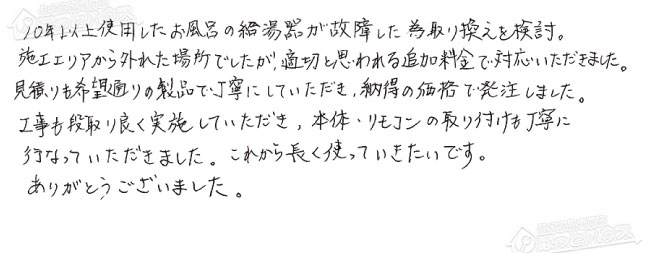 10年以上使用したお風呂の給湯器が故障した為取り換えを検討。
施工エリアから外れた場所でしたが、適切と思われる追加料金で対応いただきました。
見積りも希望通りの製品で丁寧にしていただき、納得の価格で発注しました。
工事も段取り良く実施していただき、本体・リモコンの取り付けも丁寧に
行なっていただきました。これから長く使っていきたいです。
ありがとうございました。